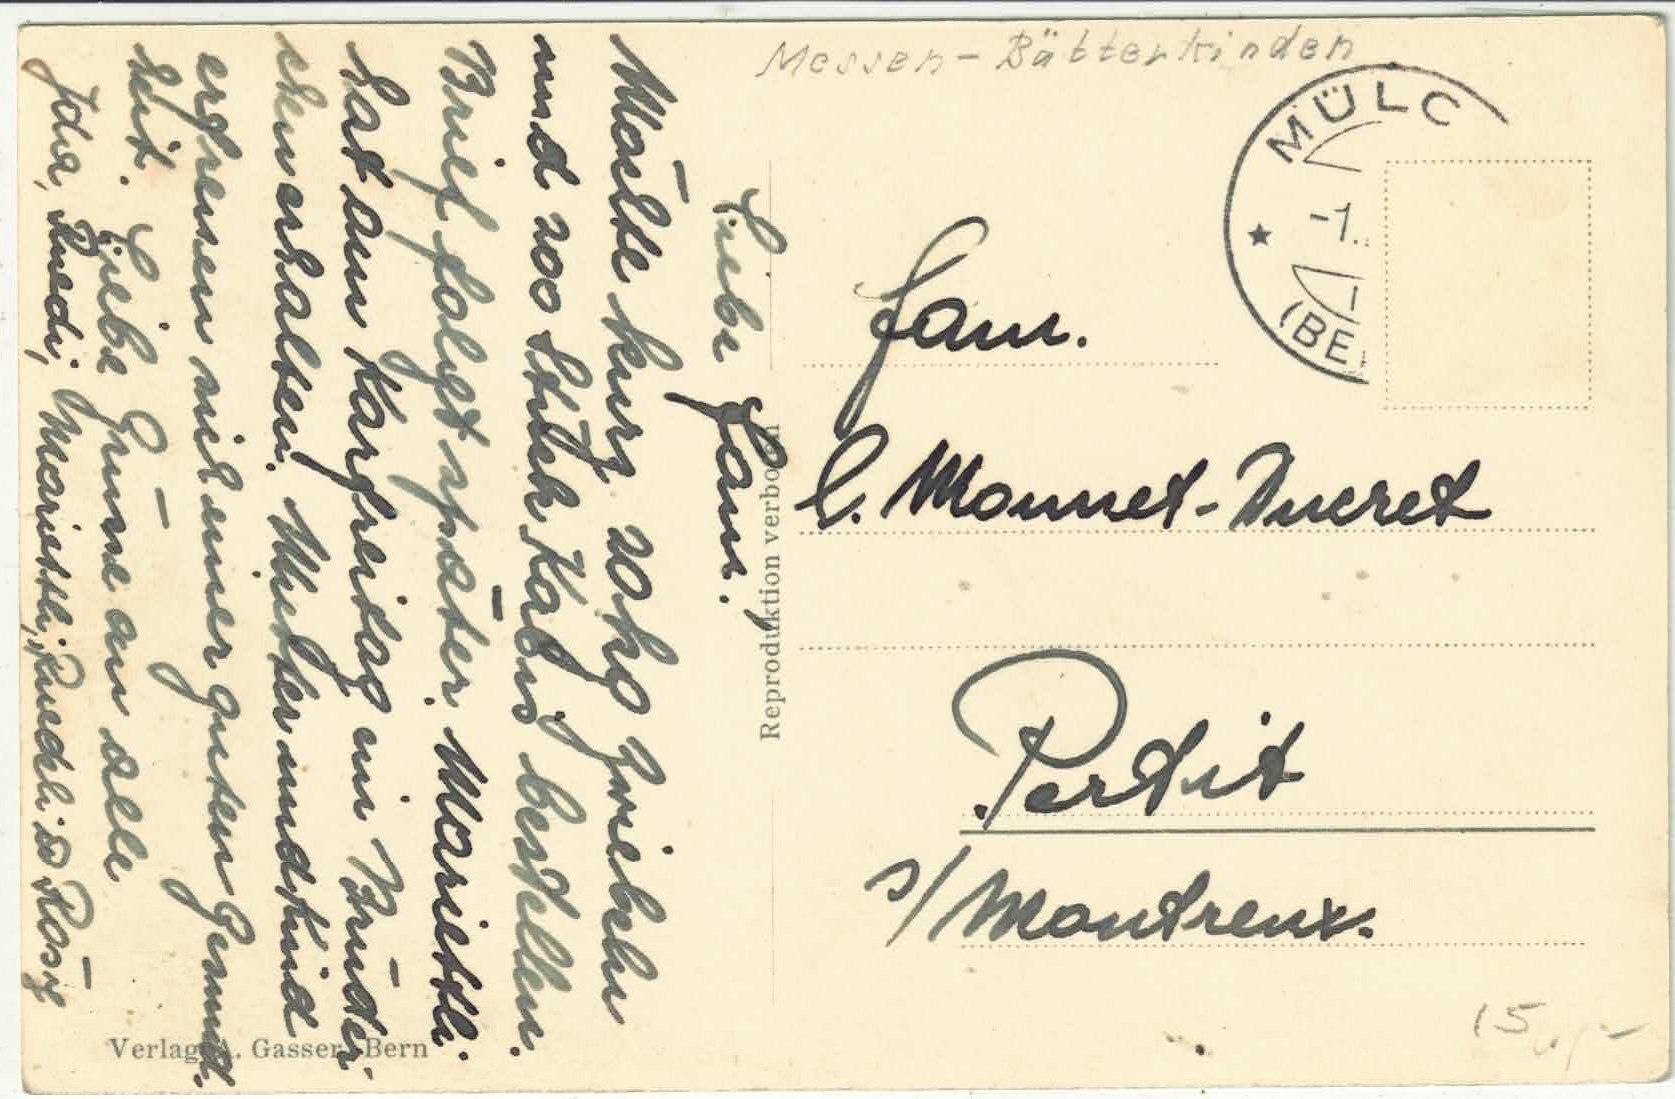 Messen - Bätterkinden
MÜLC
-1.
(BE)
Fam.
C. Monnet-Ducret
Pertit
s/Montreux.
15.-
Reproduktion verboten
Verlag A. Gasser, Bern
Liebe Fam.!
Möchte kurz 20 kg Zwiebeln
und 200 Stück Kabis bestellen.
Brief folgt später. Marietli
hat am Karfreitag ein Brüder-
chen erhalten. Mutter und Kind
erfreuen sich einer guten Gesund-
heit. Liebe Grüsse an alle
Ida, Ruedi, Marietli, Ruedeli & Rosy